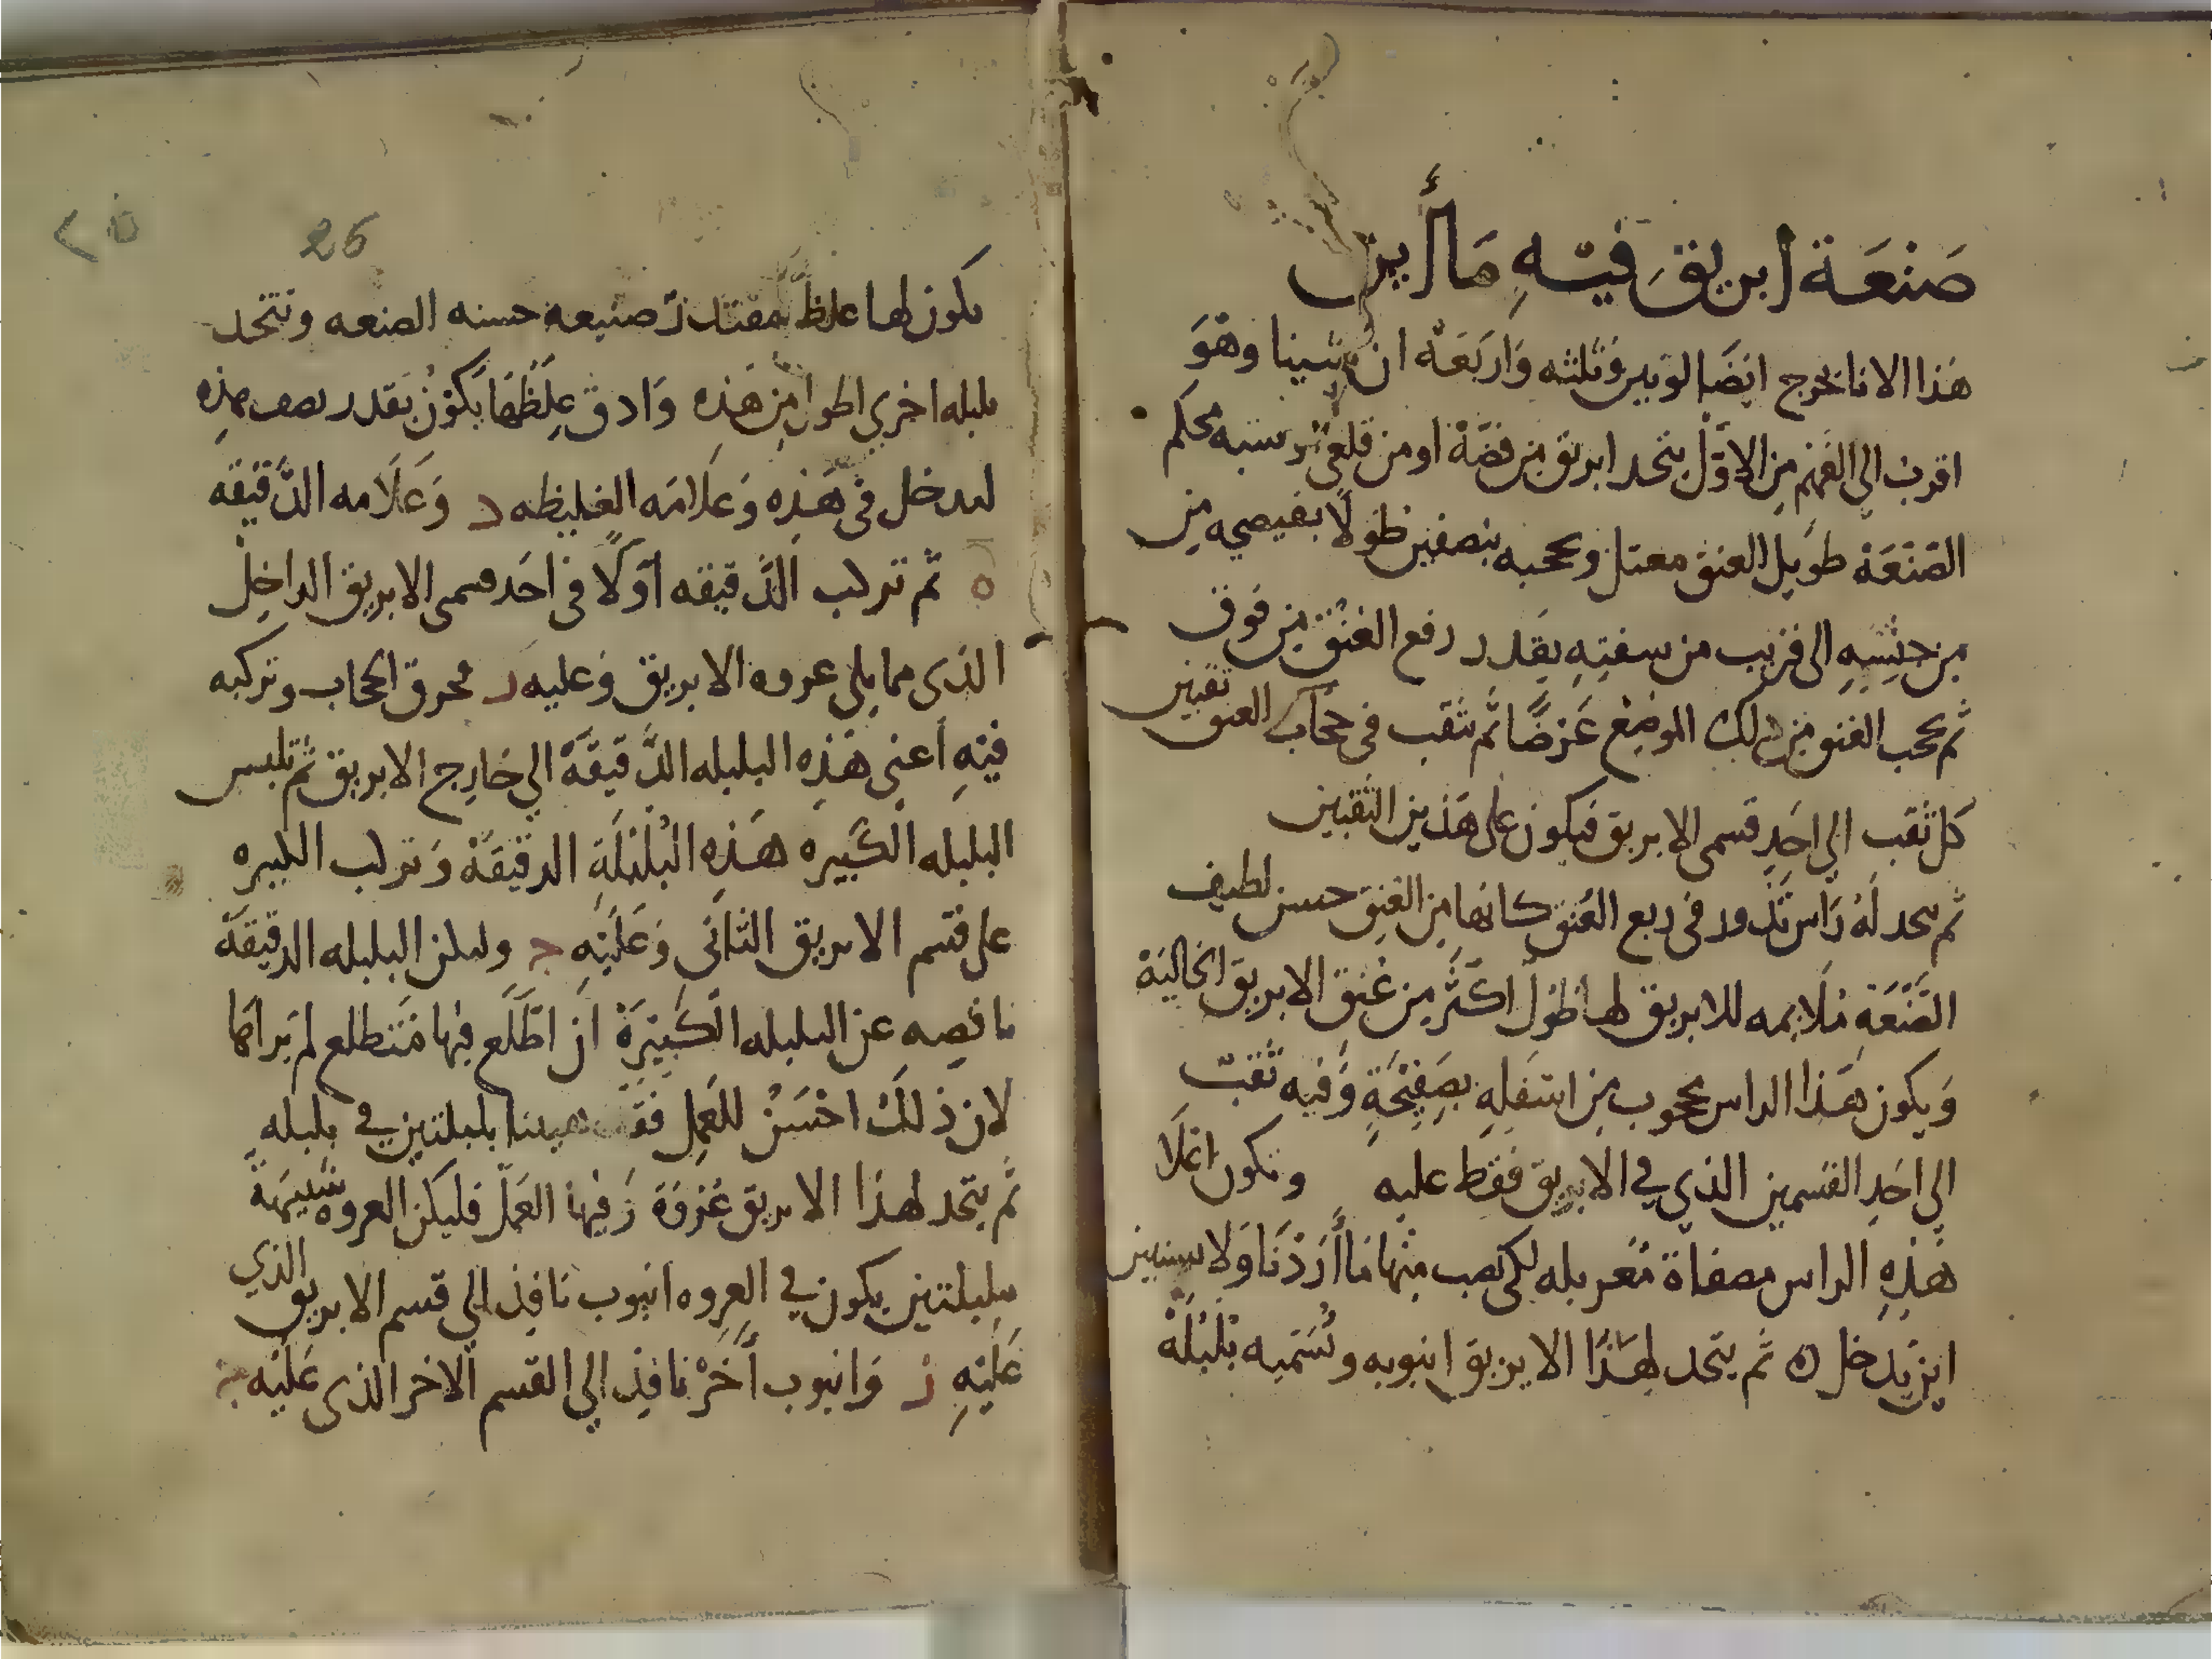 صَنْعَة ابريق فيْهِ مَاأين
هَذا الانا يخرج ايضًا لونين وثلثه وَاربَعَة ان شينا وهْوَ
اقرب الي الفهْم مِن الاوّل يتخد ابريق مِن فضَّة او من قلعي محكم
الصّنْعَة طوَيل العنق معتدل ويحجبه بنصفين طولًا مِن
الى قريب من سفتِهِ بقدر رفع العُنُق من فوق
ثم يحجب العنق مِن ذلك الموضِعْ عَرْضًا ثمّ تثقب في حجاب العنق ثقبين
كل ثقب الي احَدِ قسمى الابريق فيكون علي هَذين الثقبين
ثم يتحد لَهُ رَاس تَدور في ربع العُنق كانها مِن العُنِق حسن لطيف
الصَّنْعَةِ مُلَايمه للابريق لها طوْل اكثَرْ مِن عُنقِ الابريق الخَاليَة
وَيكون هَذا الراس محجوب مِن اسْفلِهِ بصَفِيْحَةٍ وَفيه ثقب
الي احَدِ القسمين الذي في الابريق فقط عليه وتكون اعْلَا
هَذِهِ الراس مصفاة مُغربله لكي نصب مِنْها مَا أرَدْنَا وَلا يستبين
اين يَدخل ه ثم يتحد لِهَذَا الابريق انبوبه ونُسَميه بُلْبُلَةْ
26 ٢٥
يكون لها غلظ مقتدر صنيعة حسنه الصنعه ونتخد
بلبله اخري اطول مِن هَذِه وَادق غِلَظْهَا يَكوْنُ بقدر نصف هذِه
لتدخل في هَذِه وَعلَامَه الغليظه د وَعَلَامه الدَّقيْقَه
ه ثم تركب الدَّقيقه اوّلًا في احَد قسمى الابريق الداخِل
الذى مما يلي عروه الابريق وَعليه د محرق الحجاب وتركبه
فيْهِ أعني هَذِه البلبله الدَّقيقَة الي خَارج الابريق ثم تلبس
البلبله الكَبيره هَذِه البُلْبُلَةِ الدقيْقَةْ وَتركب الكبيره
على قسْم الابريق الثاني وَعَليْهِ ج وليكن البلبله الدقيقَة
ناقصه عن البلبله الكَبيْرَةْ ان اطّلَع فيها مُتَطلع لم يَراهَا
لان ذلكَ احْسَنُ للعَملِ بلبلتين في بلبله
ثم يتخد لهذا الابريق عُرْوَة زَ فيها العَمَل فليكن العروه شبيهَة
ببلبلتين يكون في العروه انبوب نافِذ الي قسم الابريق الذي
عَليْهِ ز وَانبوب أخَرْ نافِذ الي القسم الاخر الذي عَليْه